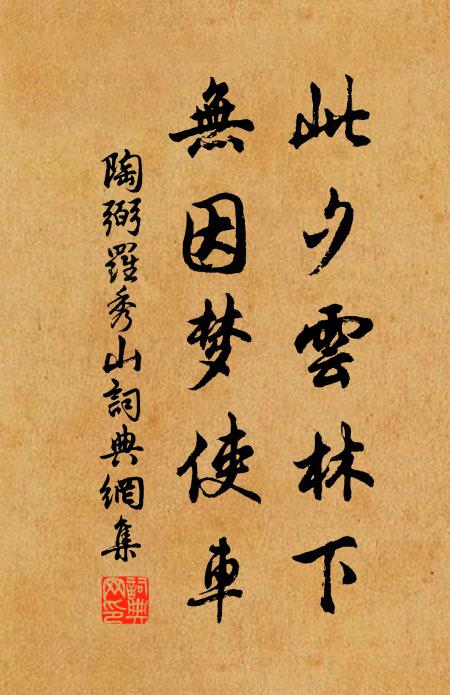 此夕雲林下
無因梦使車
陶弼羅秀山詞典網集
詞典网印